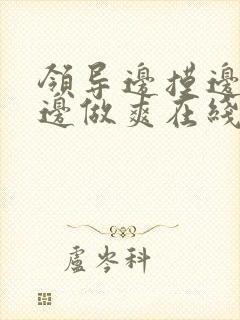 領导邊摸邊
邊做爽在綫
盧岑科